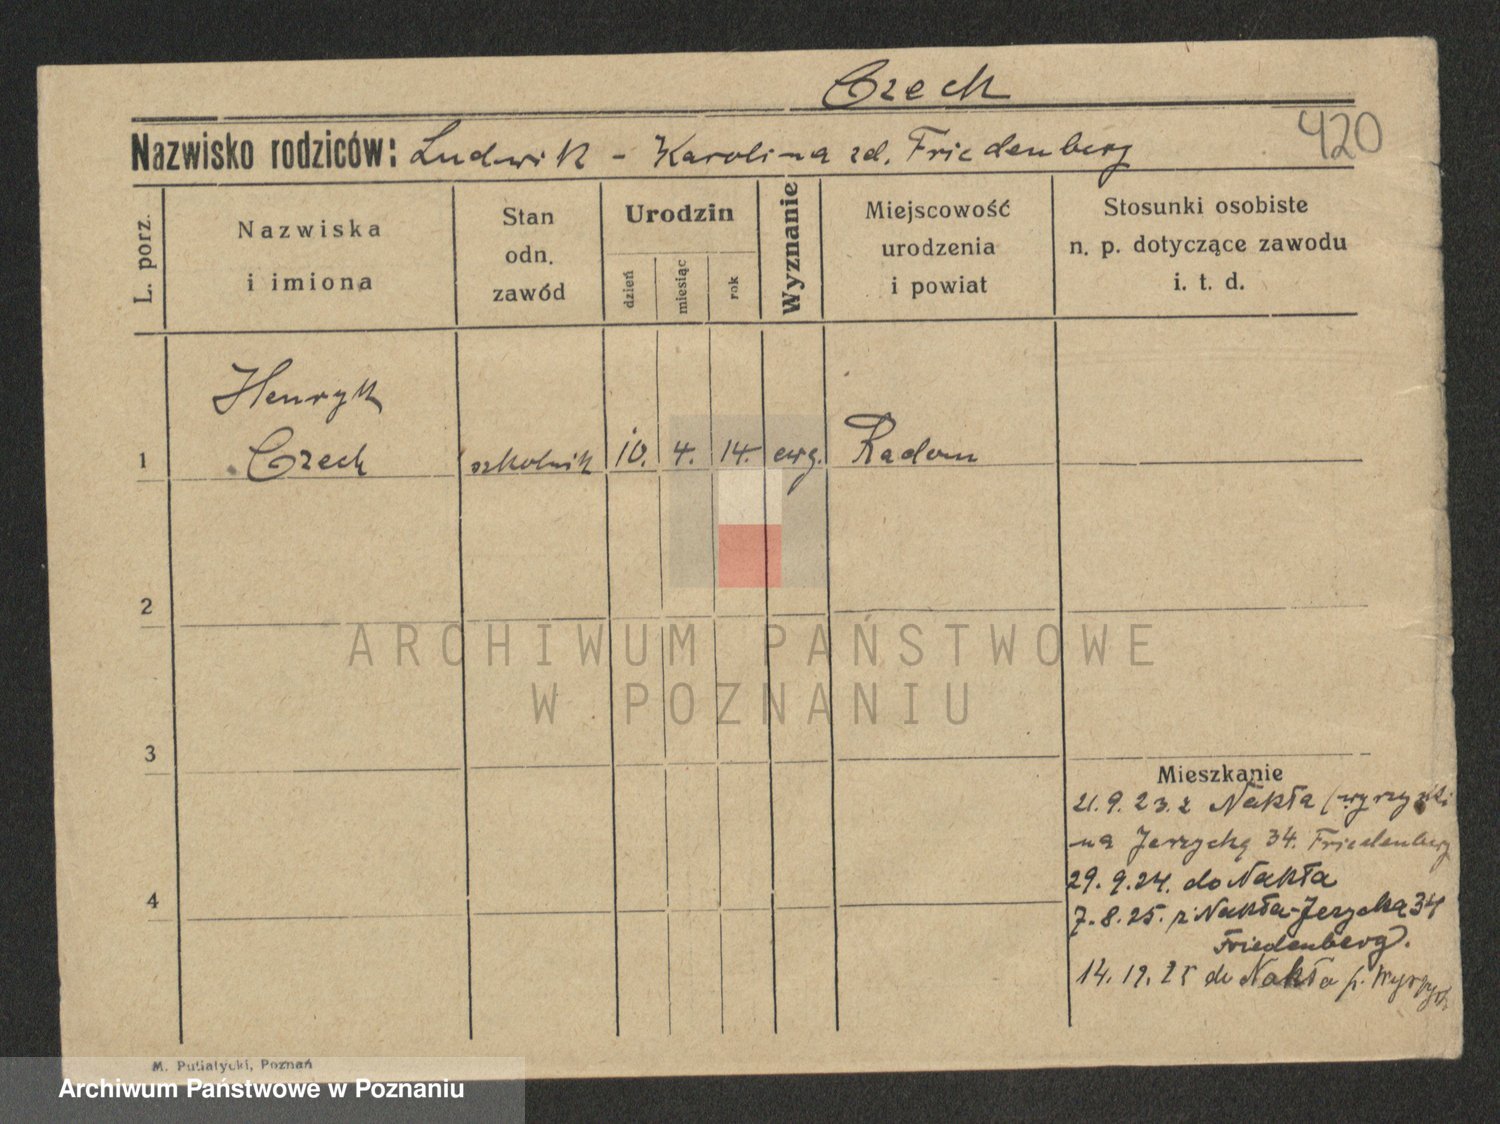 Czech
420
Nazwisko rodziców: Ludwik - Karolina zd. Friedenberg
L. porz.
Nazwiska
i imiona
Stan
odn.
zawód
Urodzin
dzień
miesiąc
rok
Wyznanie
Miejscowość
urodzenia
i powiat
Stosunki osobiste
n. p. dotyczące zawodu
i. t. d.
Henryk
1 Czech szkolnik 10. 4. 14. ewg. Radom
2
3
4
Mieszkanie
21. 9. 23. z Nakła (wyrzyski
na Jerzycką 34. Friedenberg
29. 9. 24. do Nakła
7. 8. 25. z Nakła-Jerzycka 34
Friedenberg).
14. 12. 25 do Nakła p. Wyrzysk
ARCHIWUM PAŃSTWOWE
W POZNANIU
M. Putiatycki, Poznań
Archiwum Państwowe w Poznaniu